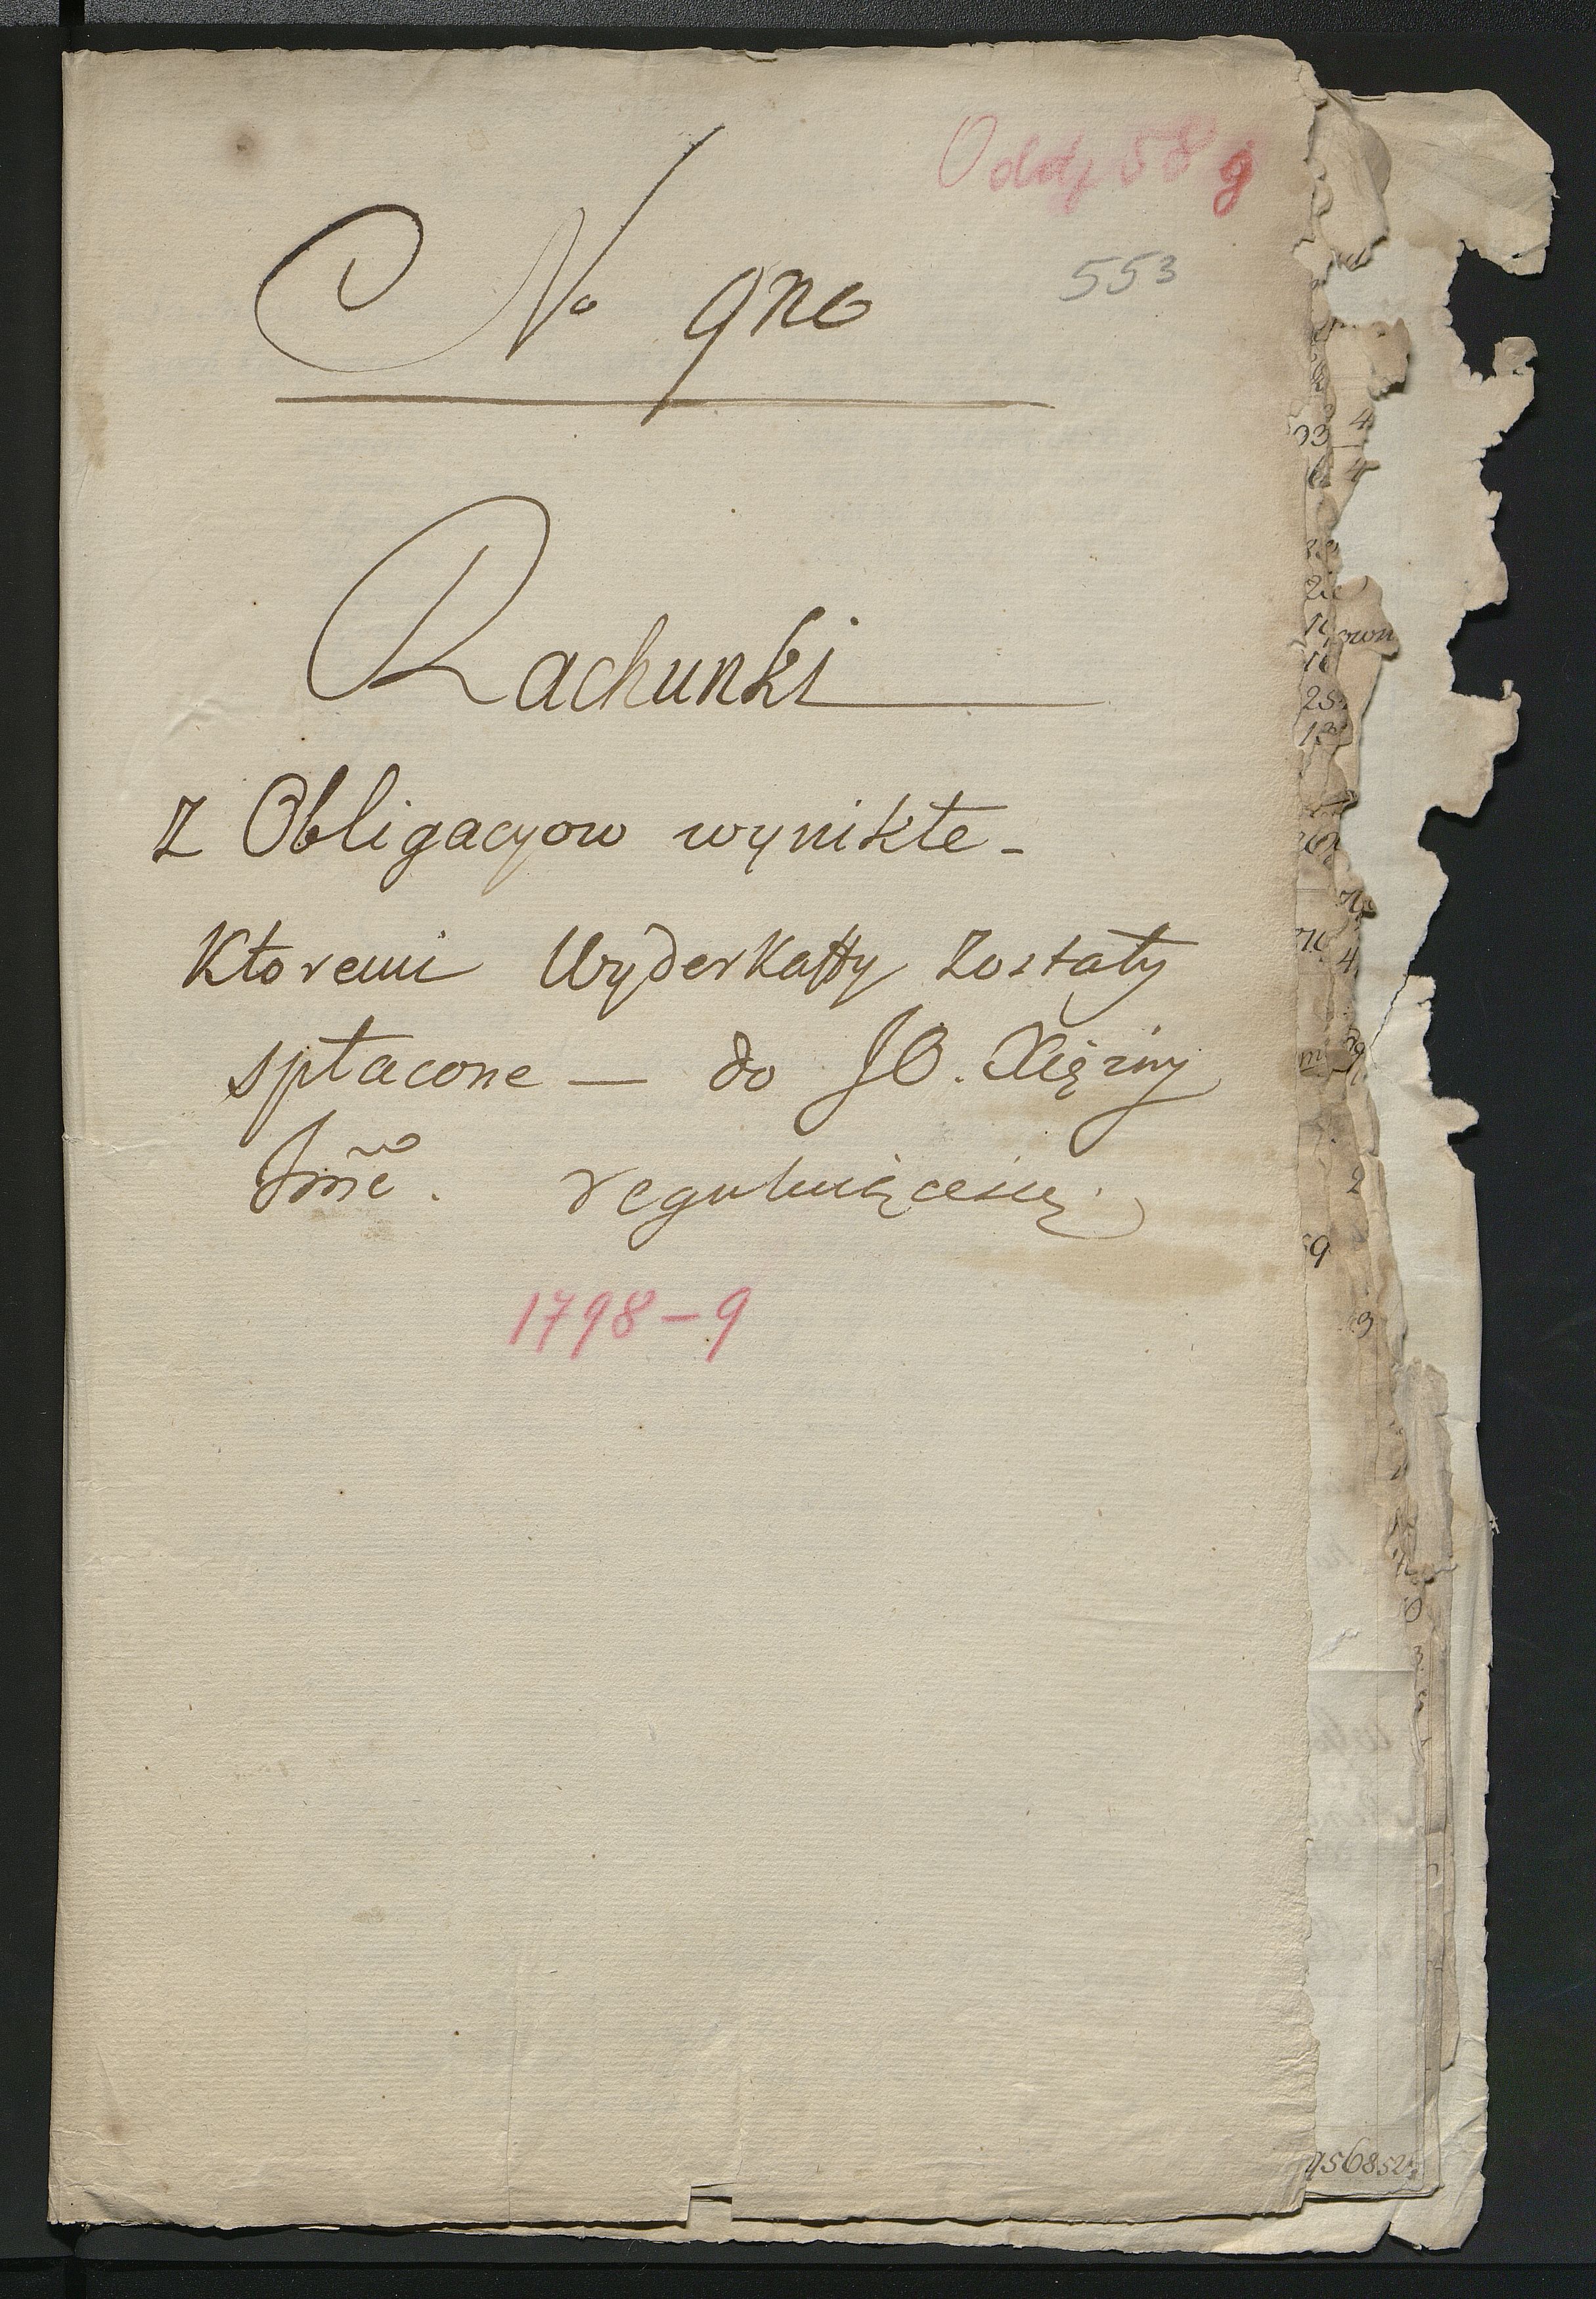 Oddz 58 g
No 9no
553
Rachunki
z Obligacyow wynikłe -
Ktoremi Wyderkaffy Zostały
spłacone — do JO. Xiężny
Jmc̃. reguluiącesię.
1798-9